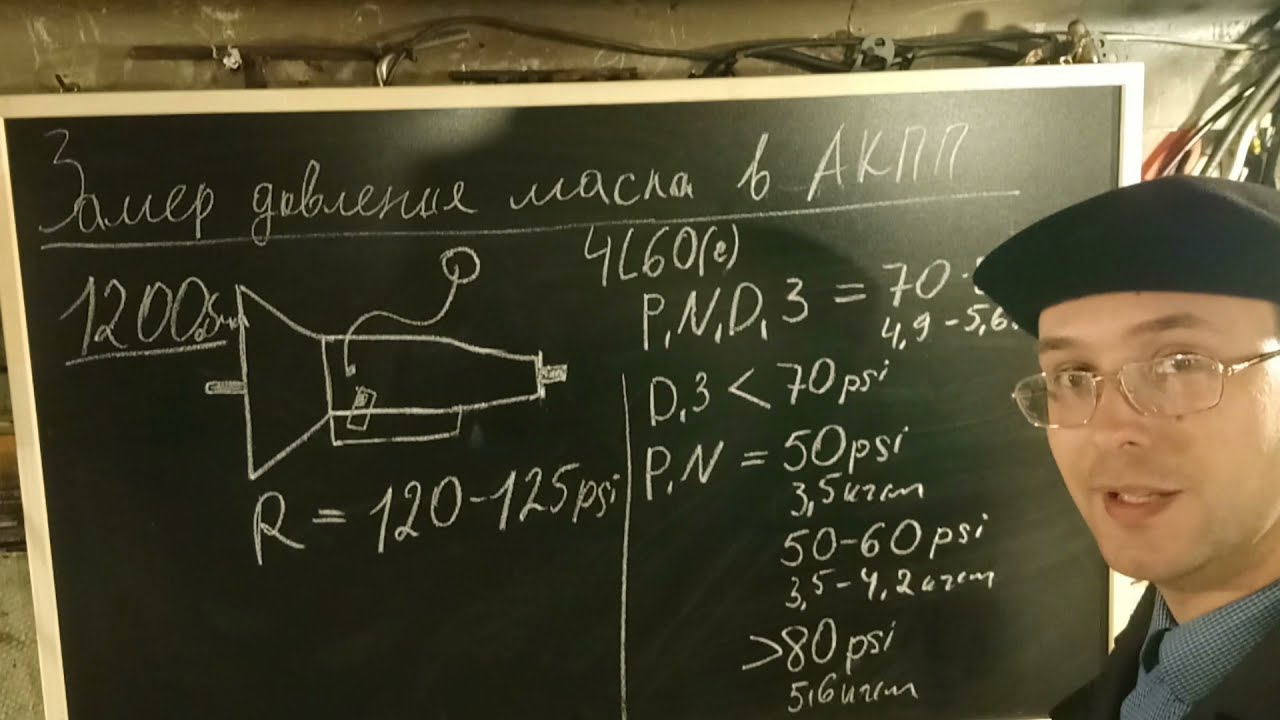 Замер давления масла в АКПП
4L60(e)
1200
P, N, D, 3 = 70
4,9-5,6
D, 3 < 70 psi
P, N = 50 psi
3,5 кгсм
R = 120-125 psi
50-60 psi
3,5-4,2 кгсм
>80 psi
5,6 кгсм